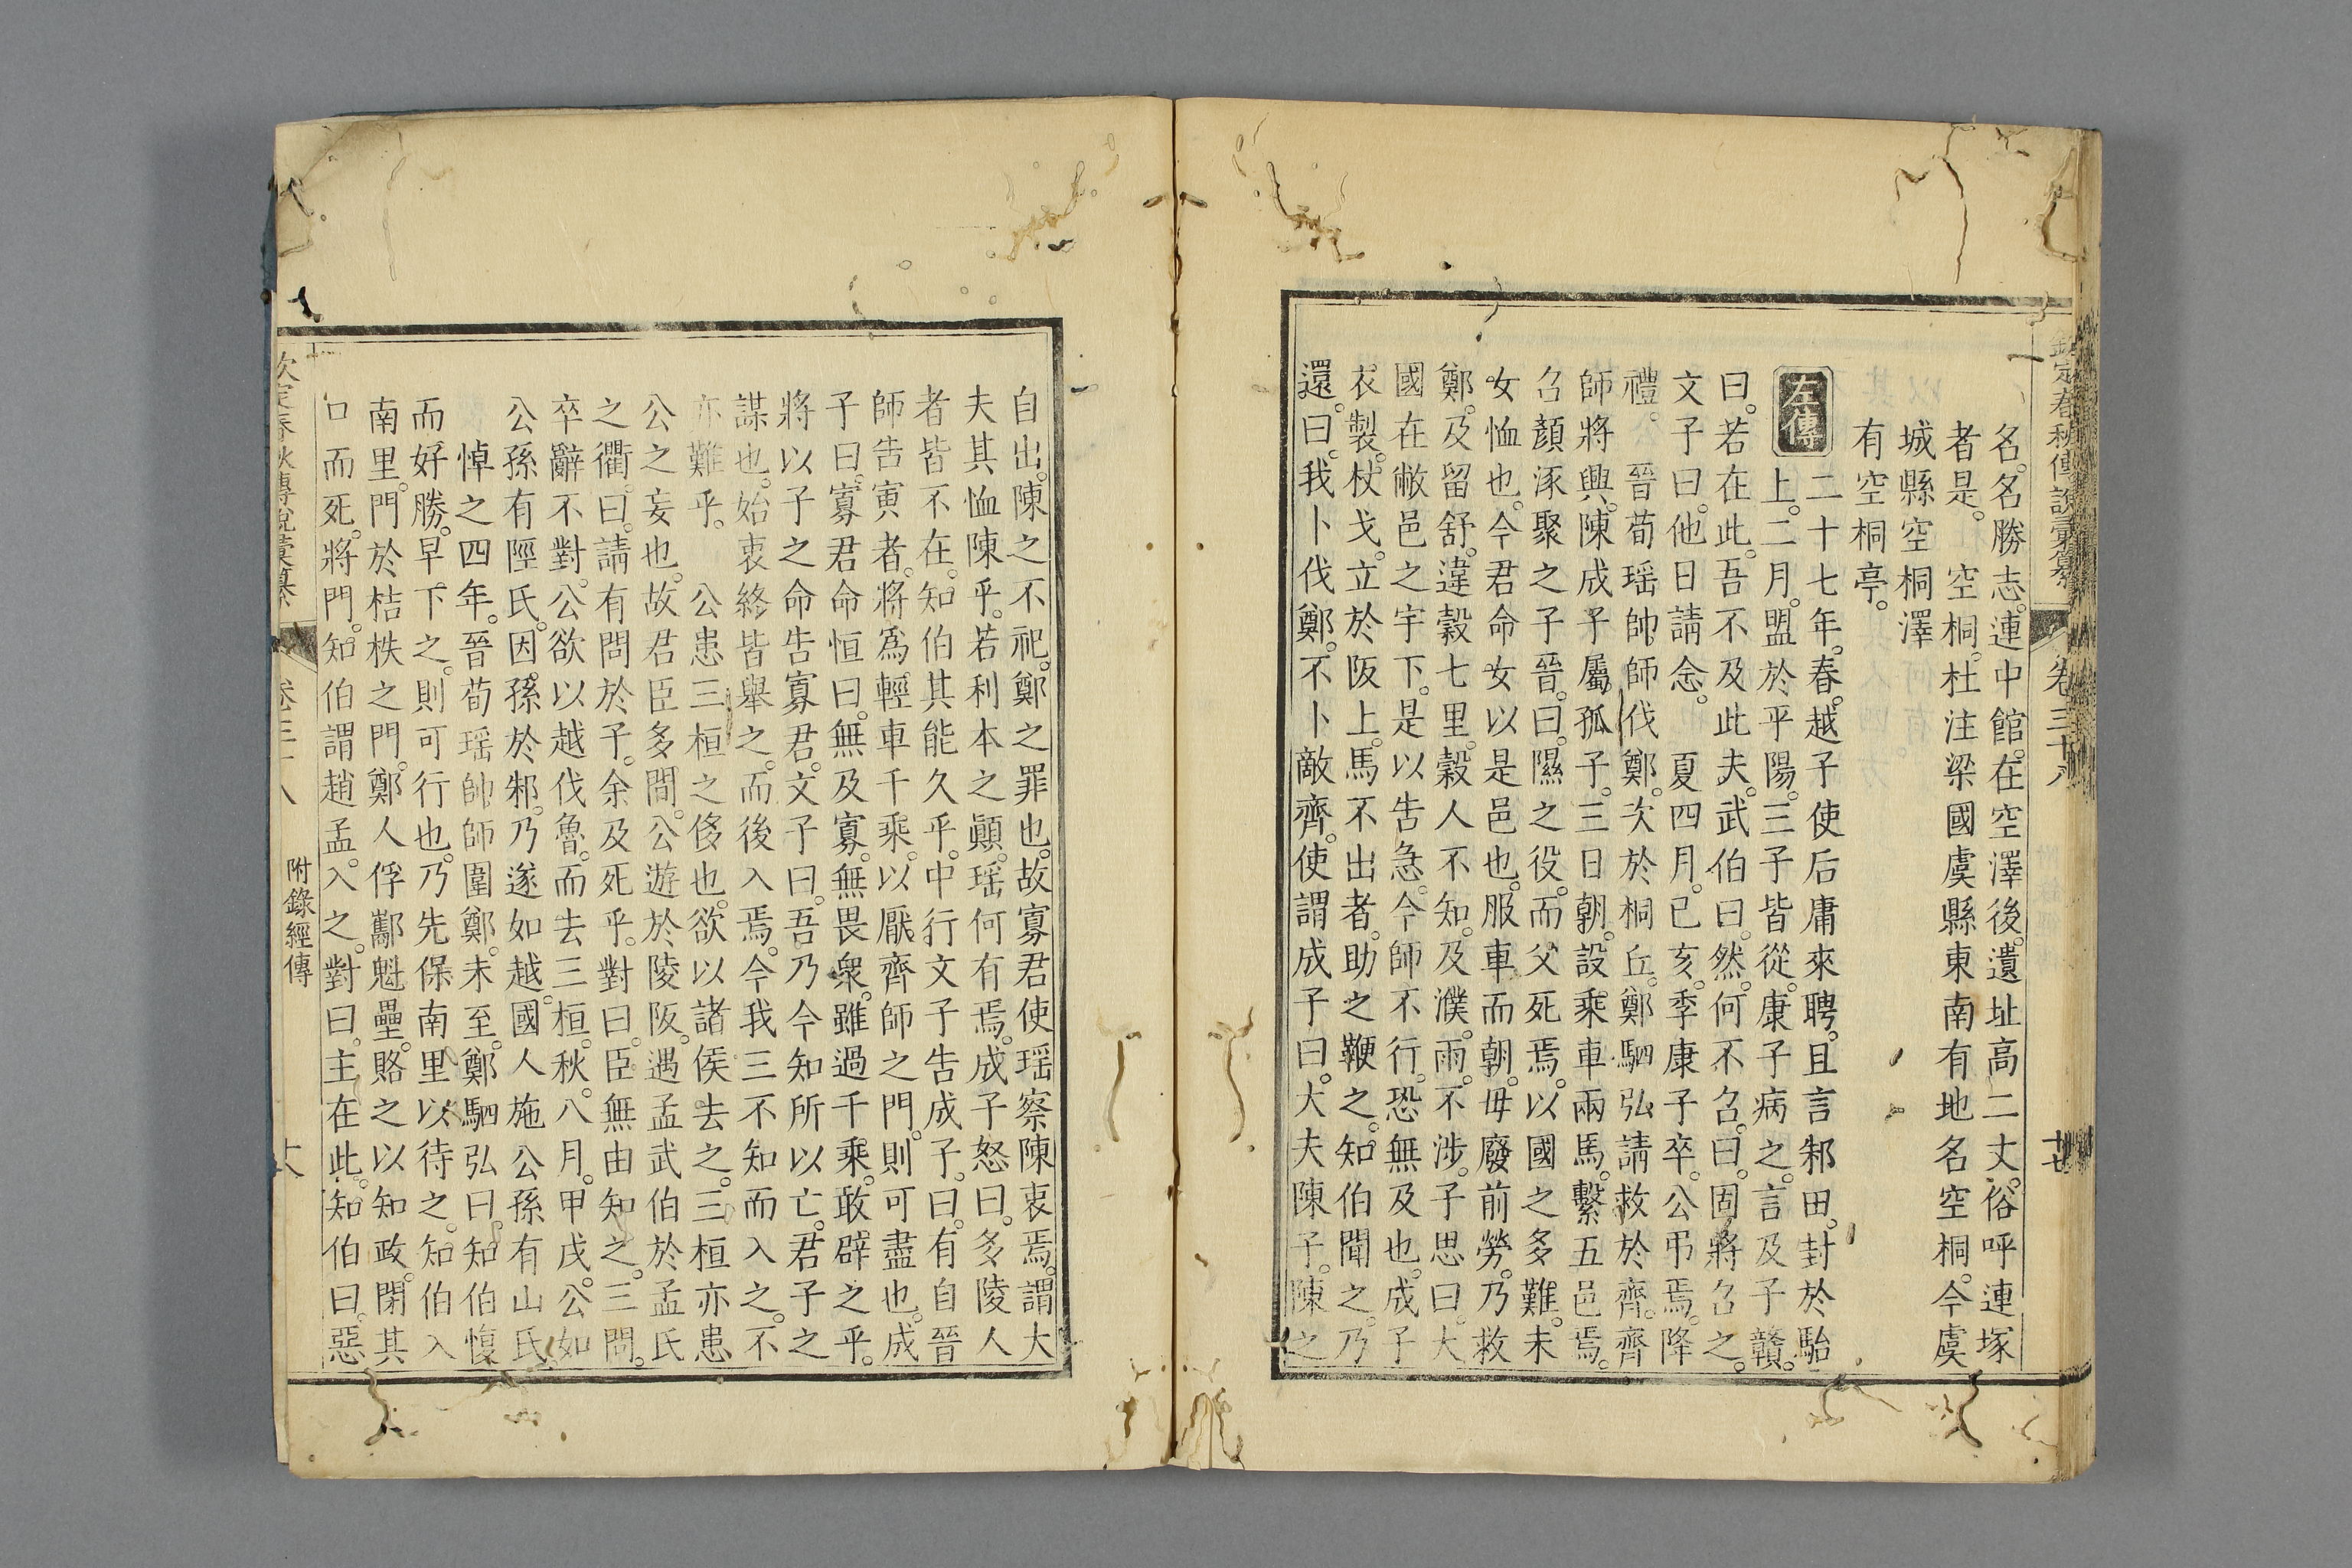 欽定春秋傳說彙纂 卷三十八 十七
名。名勝志。連中館。在空澤後。遺址高二丈。俗呼連塚
者是。空桐。杜注梁國虞縣東南有地名空桐。今虞
城縣空桐澤
有空桐亭。
左傳 二十七年。春。越子使后庸來聘。且言邾田。封於駘
上。二月。盟於平陽。三子皆從。康子病之。言及子贛。
曰。若在此。吾不及此夫。武伯曰。然。何不召。曰。固將召之。
文子曰。他日請念。 夏四月。己亥。季康子卒。公弔焉。降
禮。 晉荀瑤帥師伐鄭。次於桐丘。鄭駟弘請救於齊。齊
師將興。陳成子屬孤子。三日朝。設乘車兩馬。繫五邑焉。
召顏涿聚之子晉。曰。隰之役。而父死焉。以國之多難。未
女恤也。今君命女以是邑也。服車而朝。毋廢前勞。乃救
鄭。及留舒。違穀七里。穀人不知。及濮。雨。不涉。子思曰。大
國在敝邑之宇下。是以告急。今師不行。恐無及也。成子
衣製。杖戈。立於阪上。馬不出者。助之鞭之。知伯聞之。乃
還。曰。我卜伐鄭。不卜敵齊。使謂成子曰。大夫陳子。陳之
自出。陳之不祀。鄭之罪也。故寡君使瑤察陳衷焉。謂大
夫其恤陳乎。若利本之顚。瑤何有焉。成子怒曰。多陵人
者皆不在。知伯其能久乎。中行文子告成子。曰。有自晉
師告寅者。將爲輕車千乘。以厭齊師之門。則可盡也。成
子曰。寡君命恒曰。無及寡。無畏衆。雖過千乘。敢辟之乎。
將以子之命告寡君。文子曰。吾乃今知所以亡。君子之
謀也。始衷終皆舉之。而後入焉。今我三不知而入之。不
亦難乎。 公患三桓之侈也。欲以諸侯去之。三桓亦患
公之妄也。故君臣多間。公遊於陵阪。遇孟武伯於孟氏
之衢。曰。請有問於子。余及死乎。對曰。臣無由知之。三問。
卒辭不對。公欲以越伐魯。而去三桓。秋。八月。甲戌。公如
公孫有陘氏。因孫於邾。乃遂如越。國人施公孫有山氏
悼之四年。晉荀瑤帥師圍鄭。未至。鄭駟弘曰。知伯愎
而好勝。早下之。則可行也。乃先保南里以待之。知伯入
南里。門於桔柣之門。鄭人俘酅魁壘。賂之以知政。閉其
口而死。將門。知伯謂趙孟。入之。對曰。主在此。知伯曰。惡
欽定春秋傳說彙纂 卷三十八 附錄經傳 十八